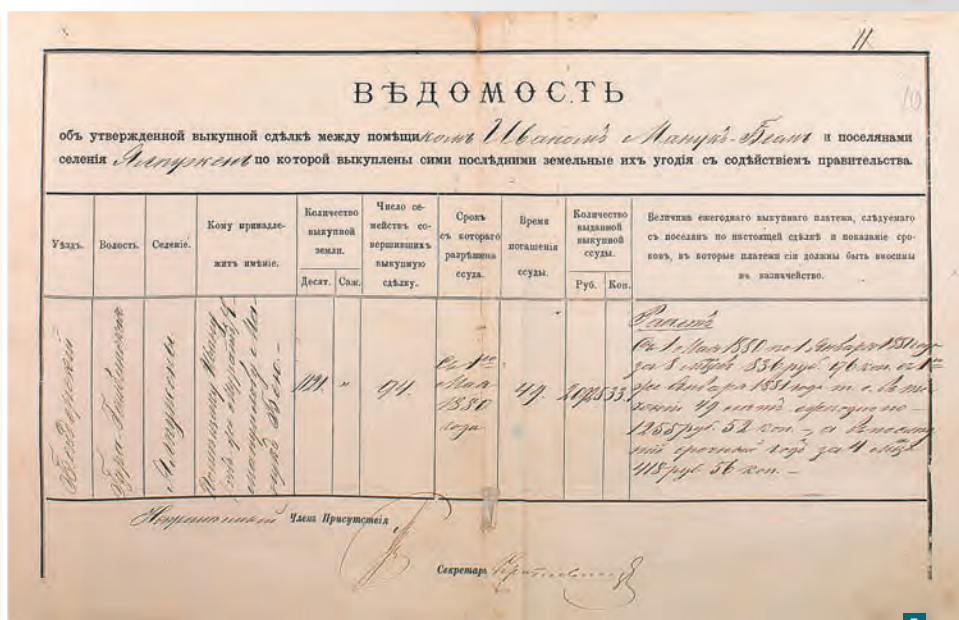 11
10
ВѢДОМОСТЬ
объ утвержденной выкупной сдѣлкѣ между помѣщикомъ Иваномъ Манукъ-Беемъ и поселянами
селенія по которой выкуплены сими послѣдними земельные ихъ угодія съ содѣйствіемъ правительства.
Уѣздъ.
Волость.
Селеніе.
Кому принадле-
житъ имѣніе.
Количество
выкупной
земли.
Десят. Саж.
Число се-
мействъ со-
вершившихъ
выкупную
сдѣлку.
Срокъ
съ котораго
разрѣшена
ссуда.
Время
погашенія
ссуды.
Количество
выданной
выкупной
ссуды.
Руб. Коп.
Величина ежегоднаго выкупнаго платежа, слѣдуемаго
съ поселянъ по настоящей сдѣлкѣ и показаніе сро-
ковъ, въ которые платежи сіи должны быть вносимы
въ казначейство.
94.
Съ 1го
Мая
1880
года
49.
Расчетъ
Съ 1 Мая 1880 по 1 Января 1881 года
за 8 836 руб.
Января 1881 года т. е. въ те-
ченіи 49 лѣтъ ежегодно по
1255 руб. 52 коп. – а въ
годъ за 4
418 руб. 56 коп. –
Членъ Присутствія
Секретарь